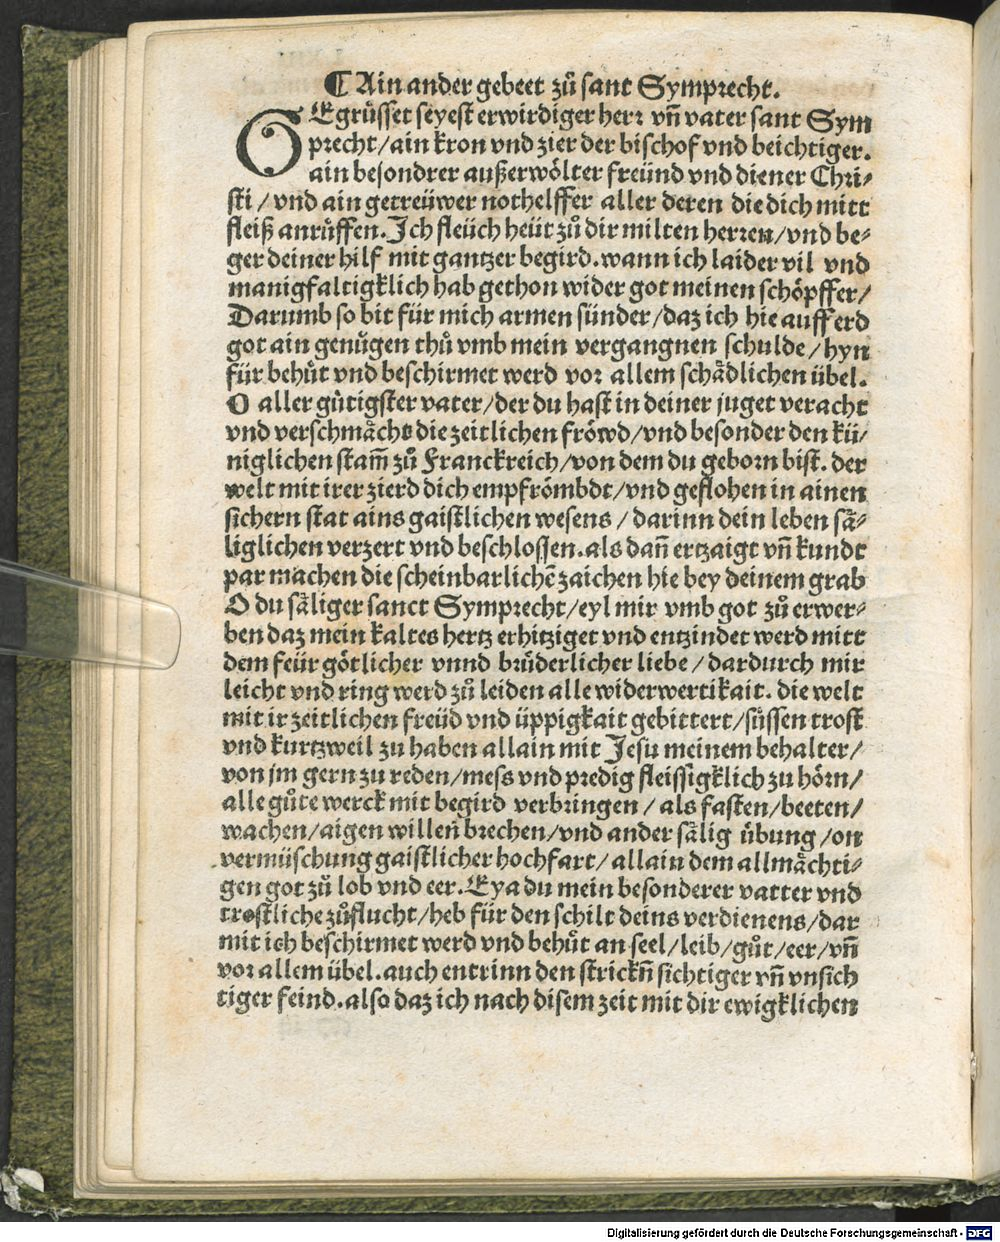 ¶ Ain ander gebeet zů sant Symprecht.
GEgrůsset seyest erwirdiger herr vñ vater sant Sym
precht/ain kron vnd zier der bischof vnd beichtiger.
ain besondrer außerwölter freünd vnd diener Chri⸗
sti/vnd ain getreüwer nothelffer aller deren die dich mitt
fleiß anrůffen. Ich fleüch heüt zů dir milten herren/vnd be⸗
ger deiner hilf mit gantzer begird. wann ich laider vil vnd
manigfaltigklich hab gethon wider got meinen schöpffer/
Darumb so bit für mich armen sünder/daz ich hie auff erd
got ain genůgen thů vmb mein vergangnen schulde/hyn
für behůt vnd beschirmet werd vor allem schådlichen übel.
O aller gůtigster vater/der du hast in deiner juget veracht
vnd verschmåcht die zeitlichen fröwd/vnd besonder den kü/
niglichen stam̃ zů Franckreich/von dem du geborn bist. der
welt mit irer zierd dich empfrömbdt/vnd geflohen in ainen
sichern stat ains gaistlichen wesens/darinn dein leben så⸗
liglichen verzert vnd beschlossen. als dañ ertzaigt vñ kundt
par machen die scheinbarlichẽ zaichen hie bey deinem grab
O du såliger sanct Symprecht/eyl mir vmb got zů erwer⸗
ben daz mein kaltes hertz erhitziget vnd entzindet werd mitt
dem feür götlicher vnnd brůderlicher liebe/dardurch mir
leicht vnd ring werd zů leiden alle widerwertikait. die welt
mit ir zeitlichen freüd vnd üppigkait gebittert/sůssen trost
vnd kurtzweil zu haben allain mit Jesu meinem behalter/
von jm gern zu reden/mess vnd predig fleissigklich zu hörn/
alle gůte werck mit begird verbringen/als fasten/beeten/
wachen/aigen willen brechen/vnd ander sålig übung/on
vermüschung gaistlicher hochfart/allain dem allmåchti⸗
gen got zů lob vnd eer. Eya du mein besonderer vatter vnd
trostliche zůflucht/heb für den schilt deins verdienens/dar
mit ich beschirmet werd vnd behůt an seel/leib/gůt/eer/vñ
vor allem übel. auch entrinn den strickñ sichtiger vñ vnsich
tiger feind. also daz ich nach disem zeit mit dir ewigklichen
Digitalisierung gefördert durch die Deutsche Forschungsgemeinschaft - DFG